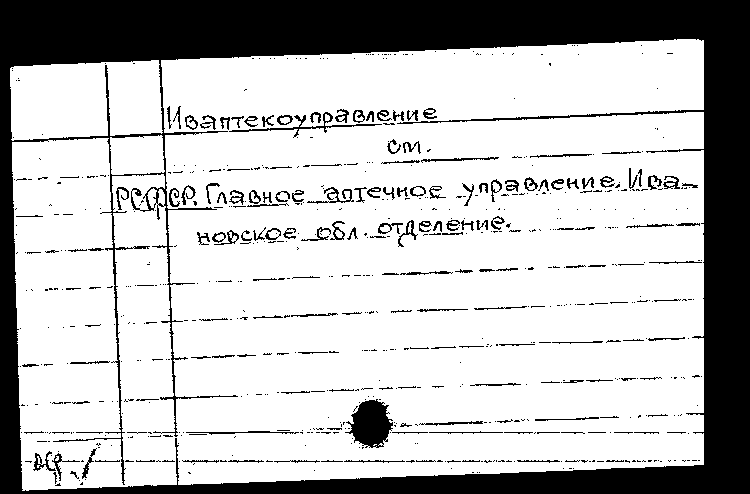 Иваптекоуправление
см.
РСФСР. Главное аптечное управление. Ива-
новское обл. отделение.